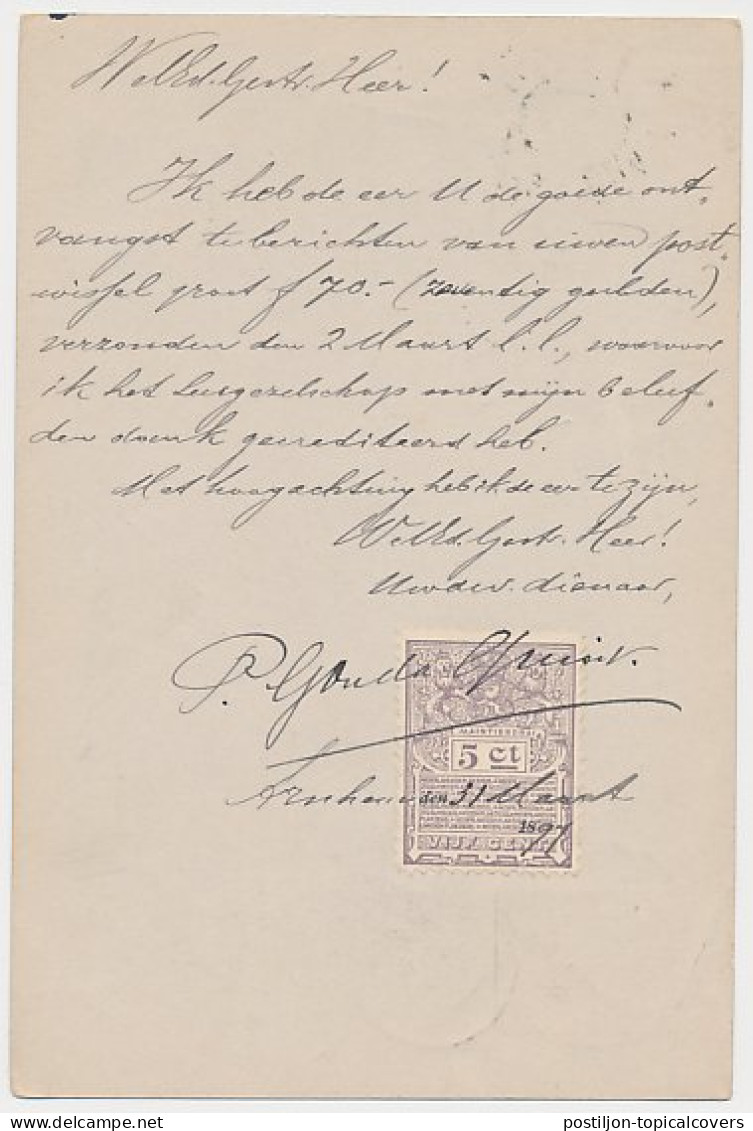 WelEd.Gestr. Heer!
Ik heb de eer U de goede ont-
vangst te berichten van uwen post-
wissel groot f 70.- (zeventig gulden),
verzonden den 2 Maart l.l., waarvoor
ik het Leesgezelschap met mijn beleef-
den dank gecrediteerd heb.
Met hoogachting heb ik de eer te zijn,
WelEd. Gestr. Heer!
Uw dw. dienaar,
P. Gouda Quint.
MAINTIENDRAI
5 ct
Arnhem den 31 Maart
1897
VIJF CENT
postiljon-topicalcovers